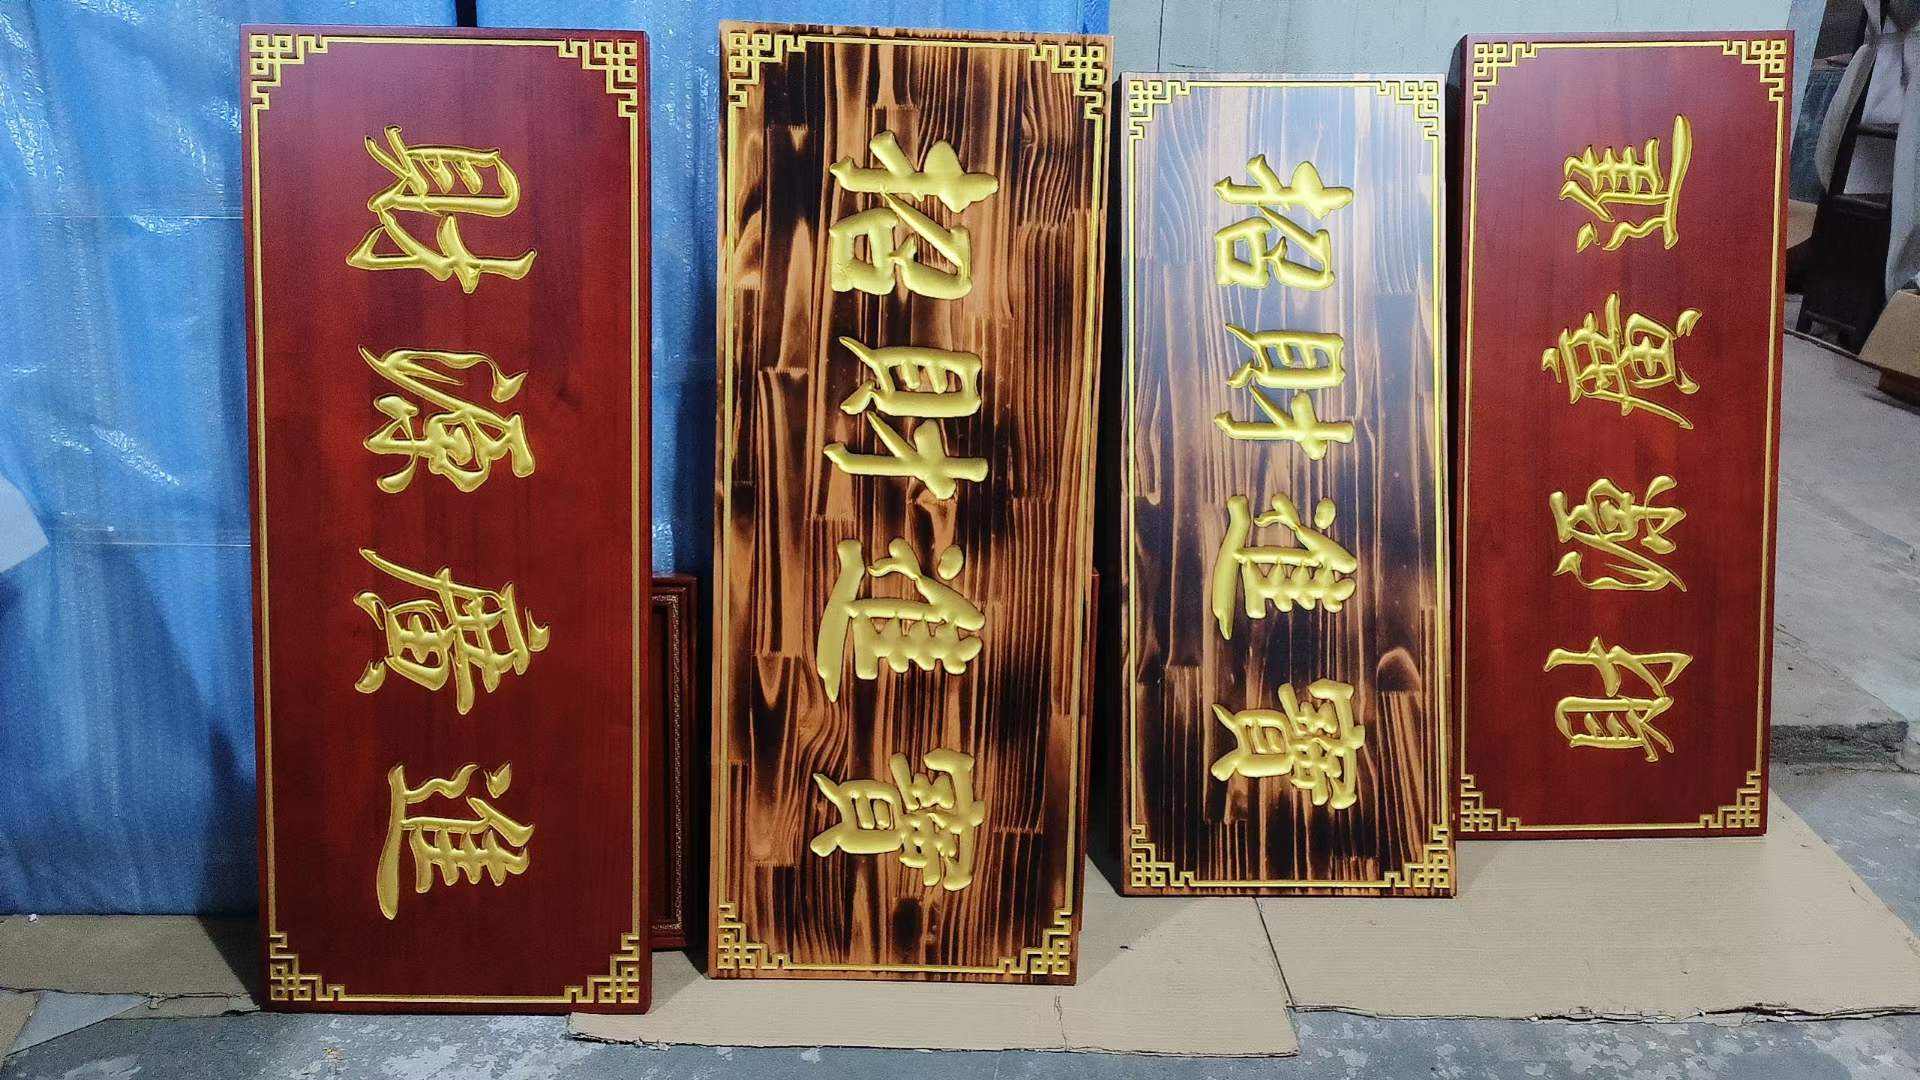 財源廣進
招財進寶
招財進寶
財源廣進